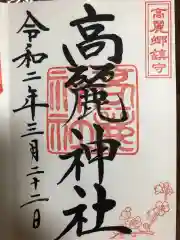 高麗郷鎮守
高麗神社
令和二年三月二十二日